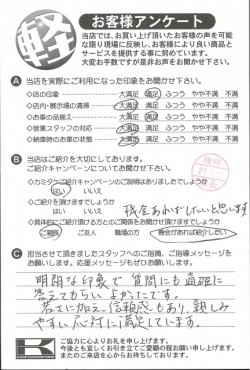 軽
お客様アンケート
当店では、お買い上げ頂いたお客様の声を可能
な限り現場に反映し、お客様により良い商品と
サービスを提供する事に努めています。
大変お手数ですが是非お声をお聞かせ下さい。
A 当店を実際にご利用になった印象をお聞かせ下さい。
◇店の印象 大満足 満足 ふつう やや不満 不満
◇店内・展示場の清掃 大満足 満足 ふつう やや不満 不満
◇お車の品揃え 大満足 満足 ふつう やや不満 不満
◇営業スタッフの対応 大満足 満足 ふつう やや不満 不満
◇納車時のお車の状態 大満足 満足 ふつう やや不満 不満
B 当店はご紹介を大切にしております。
ご紹介キャンペーンについてお聞かせ下さい。
◇カミタケご紹介キャンペーンのご説明はありましたでしょうか
はい いいえ
◇ご紹介を頂けますでしょうか
はい いいえ
機会あればしたいと思います
◇具体的にご紹介頂ける方とのご関係をお聞かせ頂けますでしょうか
ご親族 ご友人 職場の方 機会があれば紹介したい
C 担当させて頂きましたスタッフへのご指摘、ご指導メッセージを
お願いします。応援メッセージもぜひお願いします。
明朗な印象で質問にも適確に
答えてもらい よかったです。
若さに加え、信頼感もあり、親しみ
やすい応対に満足しています。
K
ご協力に心よりお礼を申し上げます。
今後とも宜しくお引き立てご愛顧の程お願い申し上げます。
またのご来店を心からお待ちしております。